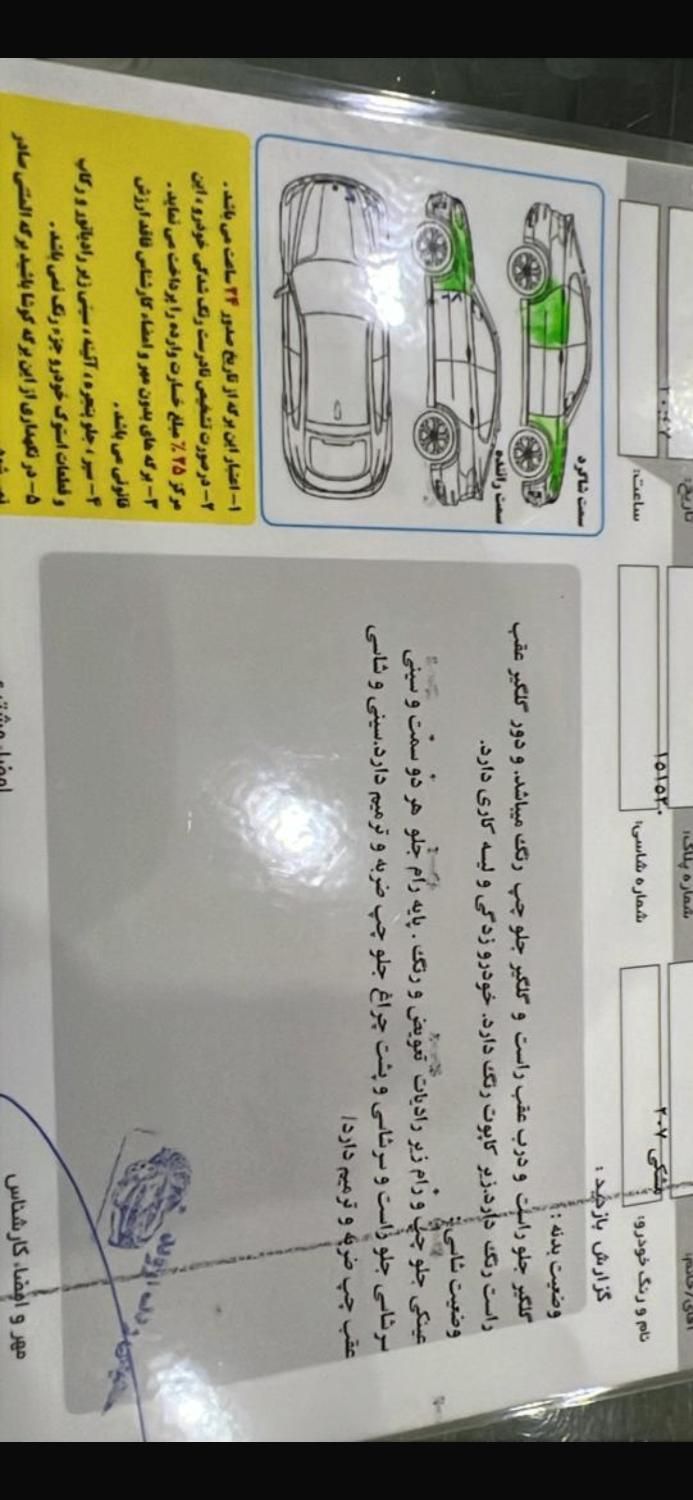 آقای/خانم:
شماره پلاک:
تاریخ:
نام و رنگ خودرو:
مشکی ۲۰۷
شماره شاسی:
ساعت:
گزارش بازدید :
وضعیت بدنه :
گلگیر جلو راست و درب عقب راست و گلگیر جلو چپ رنگ میباشد. و دور گلگیر عقب
راست رنگ دارد.زیر کاپوت رنگ دارد. خودرو زدگی و لیسه کاری دارد.
وضعیت شاسی:
عینکی جلو چپ و رام زیر رادیات تعویض و رنگ . پایه رام جلو هر دو سمت و سینی
سرشاسی جلو راست و سرشاسی و پشت چراغ جلو چپ ضربه و ترمیم دارد.سینی و شاسی
عقب چپ ضربه و ترمیم دارد/
سمت شاگرد
سمت راننده
۱- اعتبار این برگه از تاریخ صدور ۲۴ ساعت می باشد .
۲- درصورت تشخیص نادرست رنگ شدگی خودرو ، این
مرکز ۲۵٪ مبلغ خسارت وارده را پرداخت می نماید .
۳- برگه های بدون مهر و امضاء کارشناس فاقد ارزش
قانونی می باشد .
۴- سپر ، جلو پنجره ، آئینه ، سینی زیر رادیاتور و رکاب
و قطعات استوک خودرو جزء رنگ نمی باشد .
۵- در نگهداری از این برگه کوشا باشید برگه المثنی صادر
نمی شود
مهر و امضاء کارشناس
امضاء مشتری